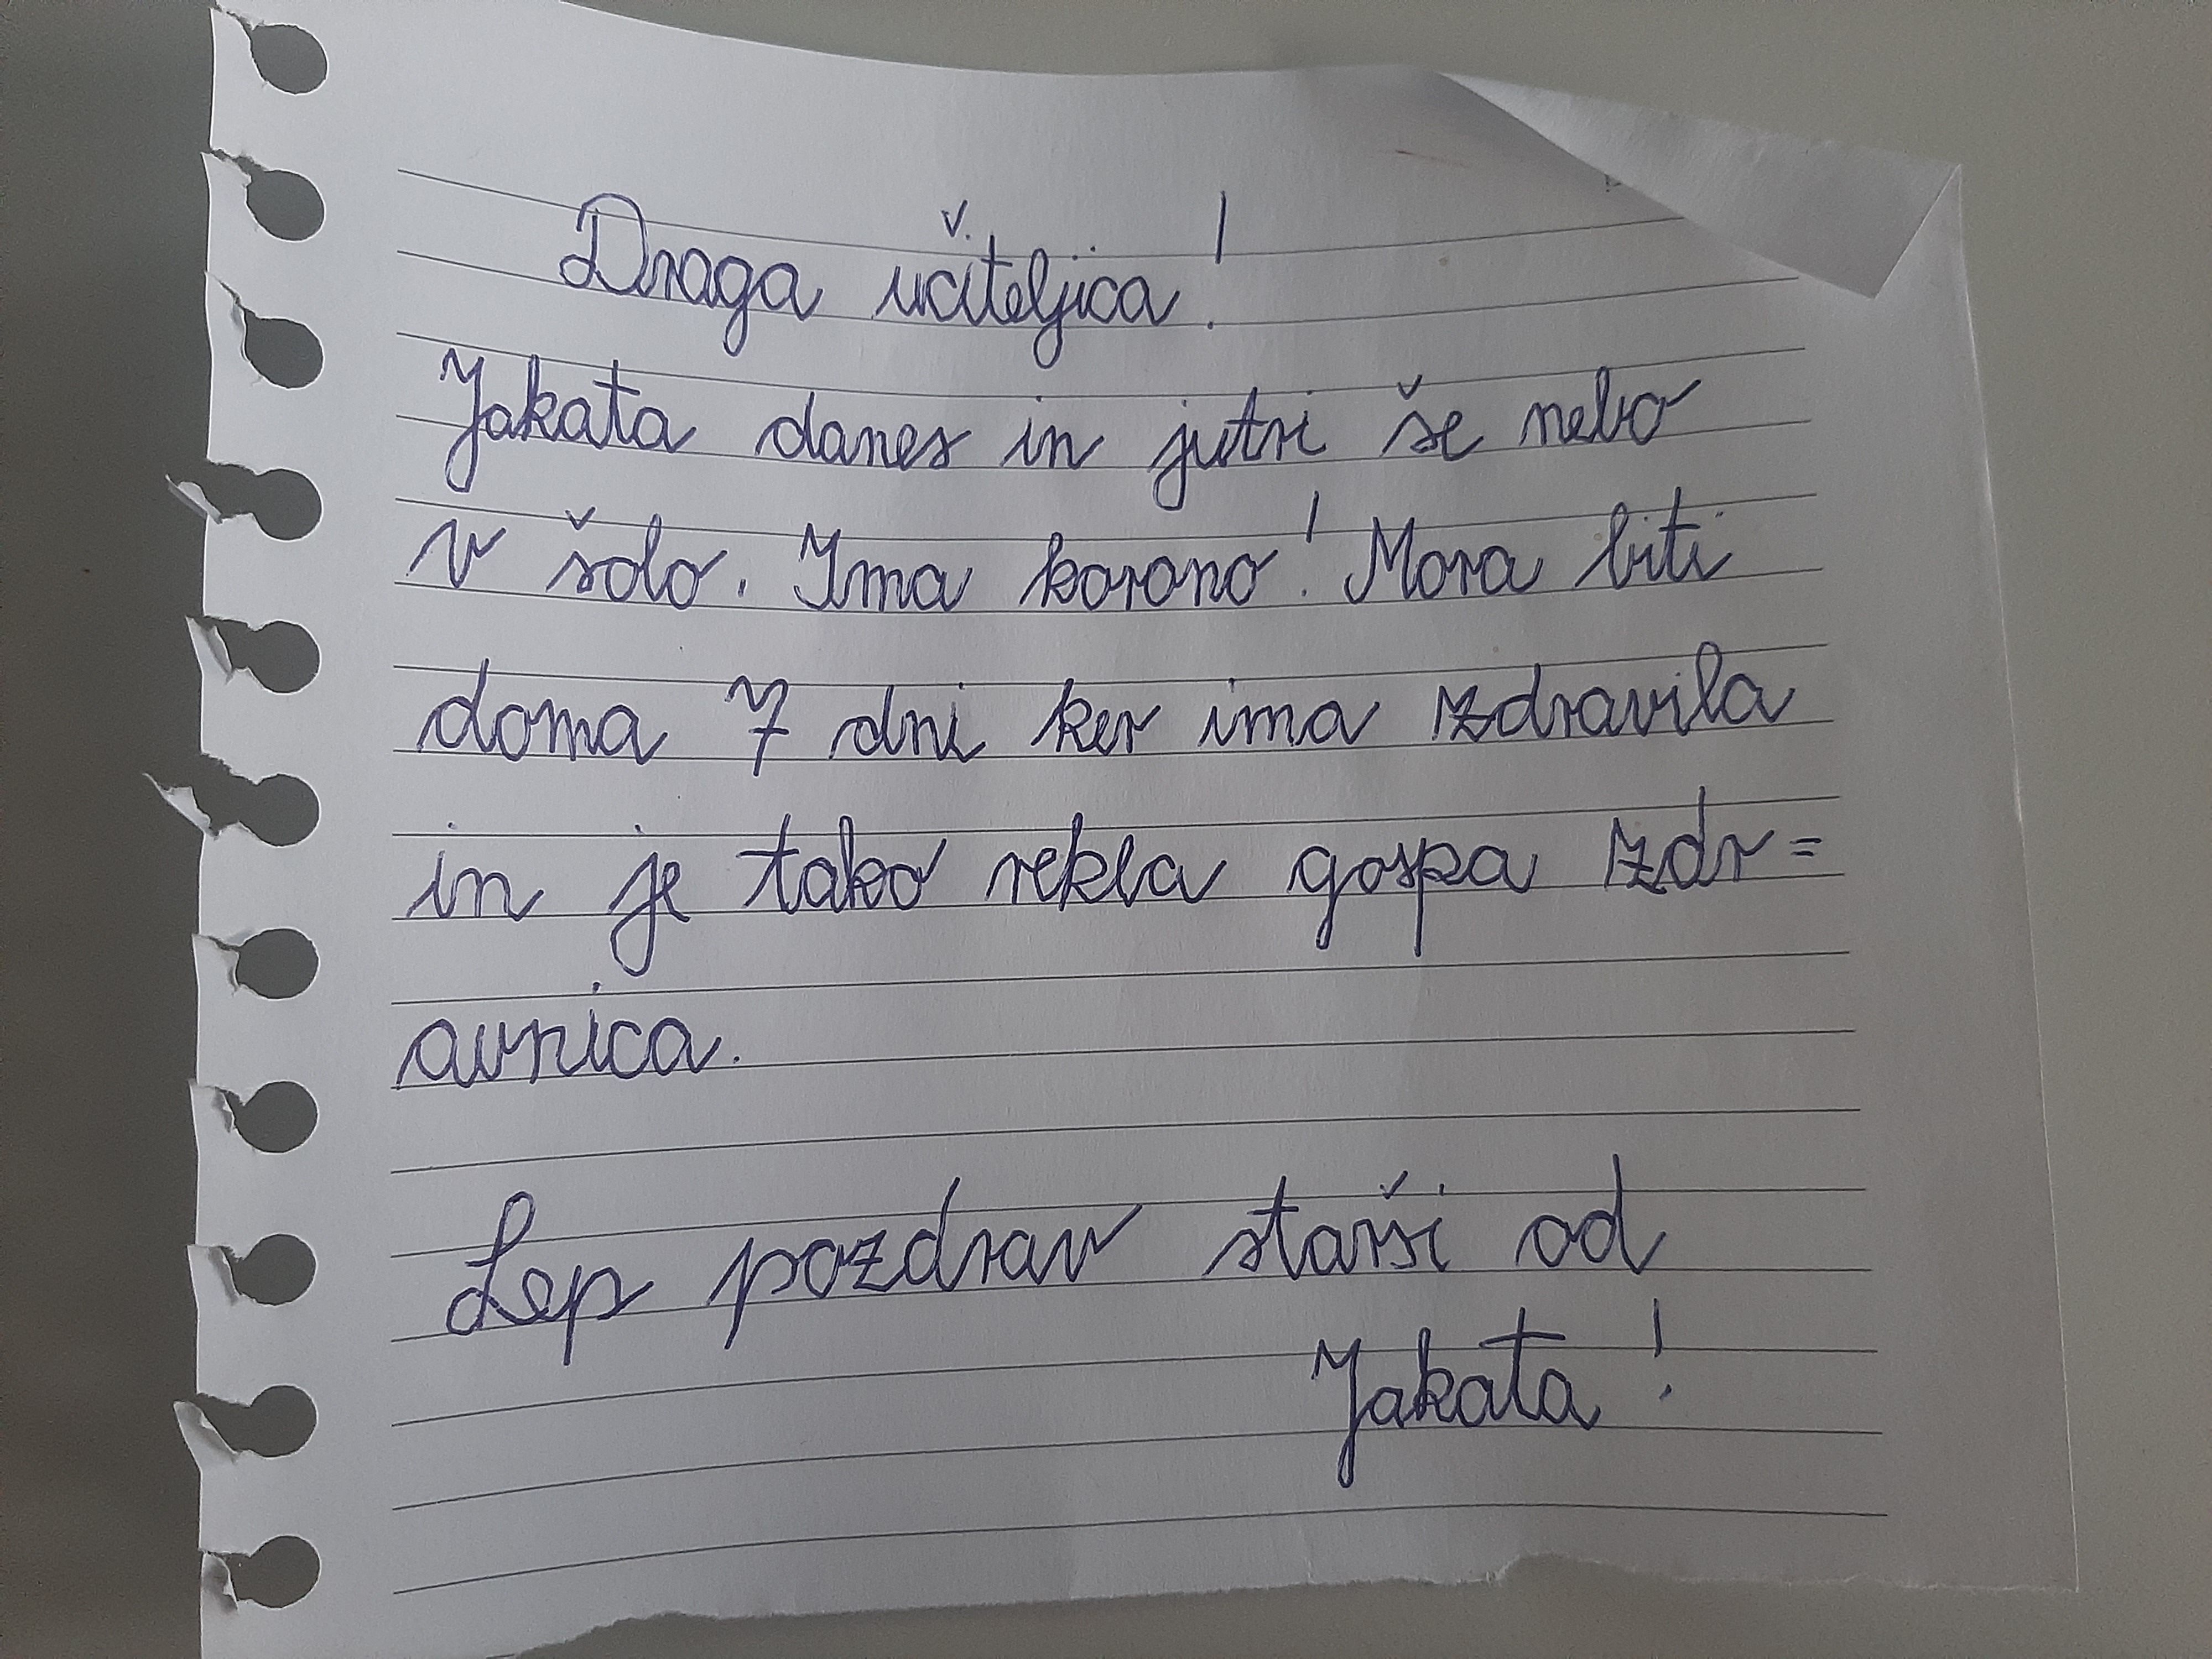 Draga učiteljica!
Jakata danes in jutri še nebo
v šolo. Ima korono! Mora biti
doma 7 dni ker ima zdravila
in je tako rekla gospa zdr=
avnica.
Lep pozdrav starši od
Jakata!